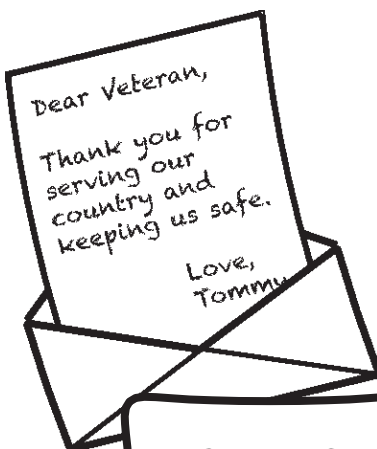 Dear Veteran,
Thank you for
serving our
country and
keeping us safe.
Love,
Tommy